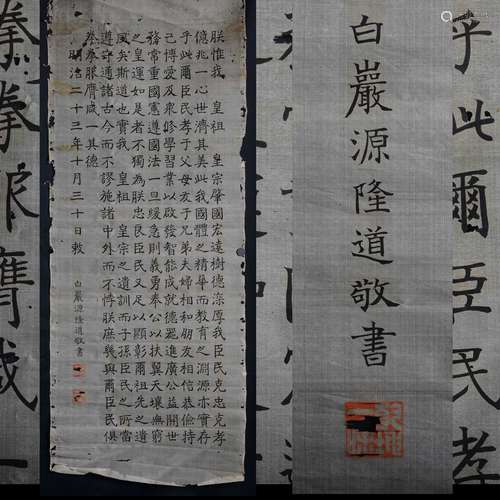 朕惟我 皇祖 皇宗肇國宏遠樹德深厚我臣民克忠克孝
億兆一心世濟其美此我國體之精華而教育之淵源亦實存
乎此爾臣民孝于父母友于兄弟夫婦相和朋友相信恭儉持
己博愛及衆修學習業以啟發智能成就德器進廣公益開世
務常重國憲遵國法一旦緩急則義勇奉公以扶翼天壤無窮
之皇運如是者不獨為朕忠良臣民又足以顯彰爾祖先之遺
風矣斯道也實我 皇祖 皇宗之遺訓而子孫臣民之所當
遵守通諸古今而不謬施諸中外而不悖朕庶幾與爾臣民俱
拳拳服膺咸一其德
明治二十三年十月三十日敕
白巖源隆道敬書
乎此爾臣民孝
白巖源隆道敬書
拳拳服膺咸一